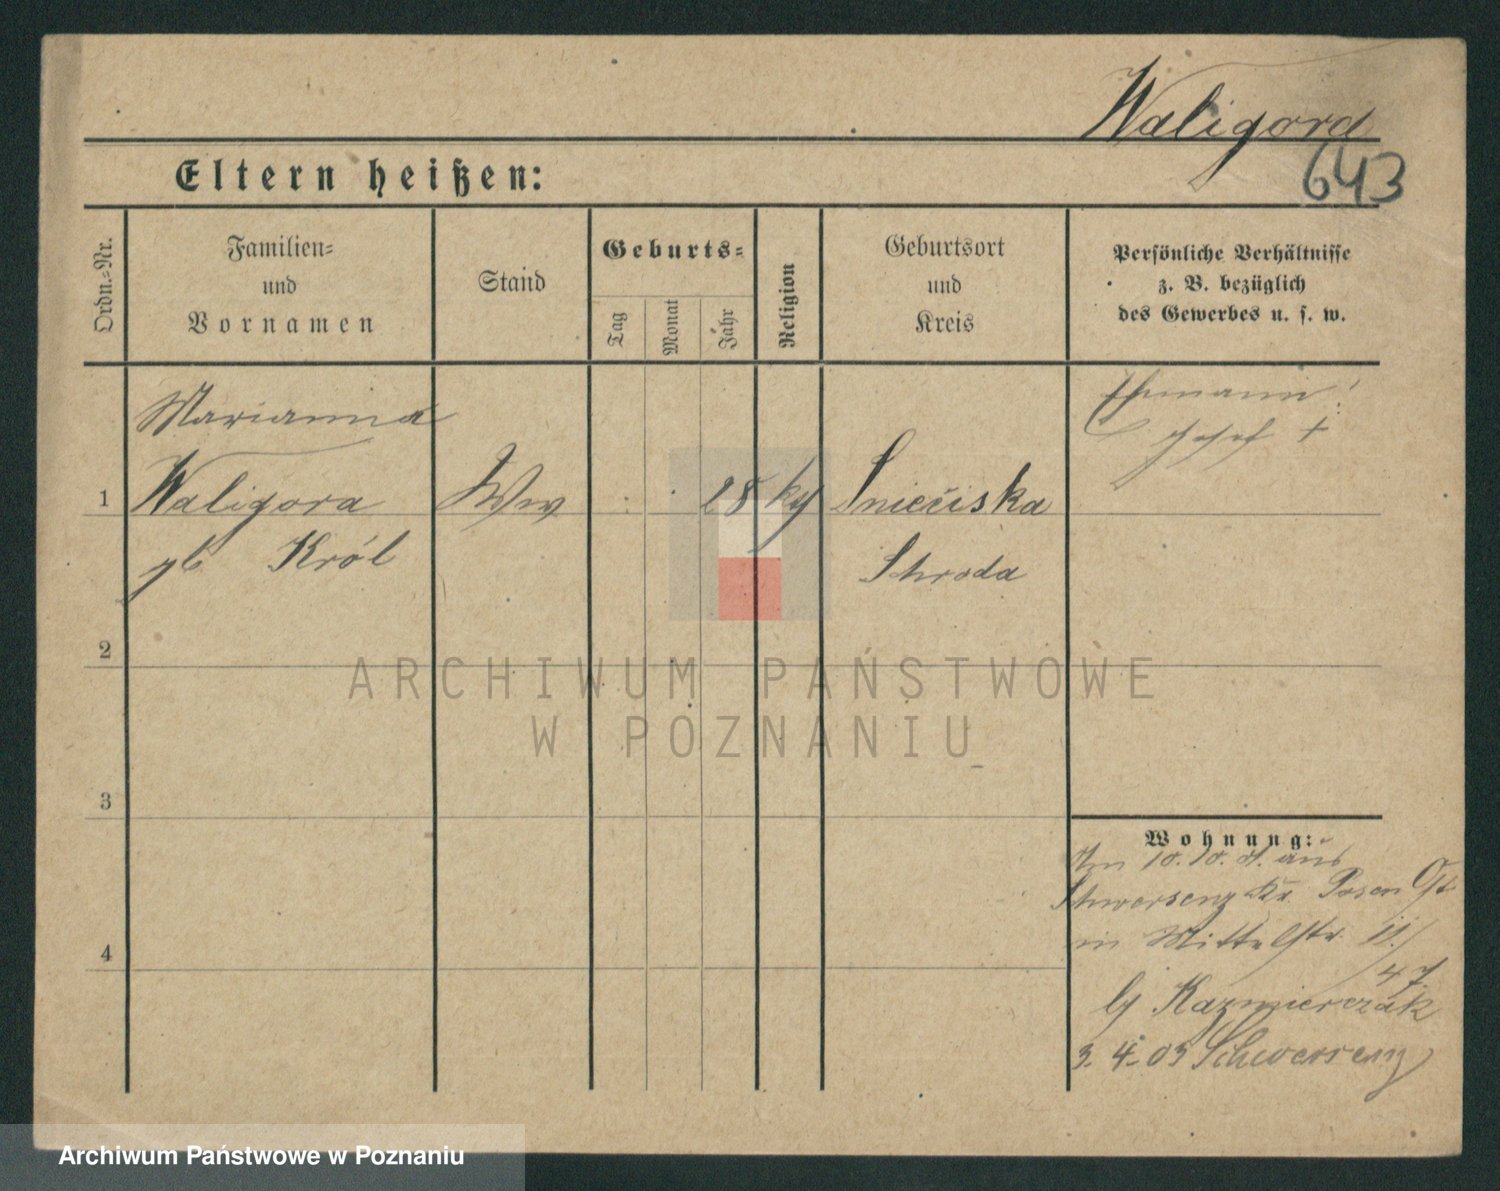 Waligora
643
Eltern heißen:
Ordn.=Nr.
Familien=
und
Vornamen
Stand
Geburts=
Tag
Monat
Jahr
Religion
Geburtsort
und
Kreis
Persönliche Verhältnisse
z. B. bezüglich
des Gewerbes u. s. w.
Marianna
Ehmann
Josef +
1 Waligora Ww 28 Snieciska
gb Król Schroda
2
3
4
ARCHIWUM PAŃSTWOWE
W POZNANIU
Wohnung:
aus
Schwersenz Kr. Posen Ost
in Mittelstr. 11/
47
bj Kazmierczak
3. 4. 03 Schwersenz
Archiwum Państwowe w Poznaniu